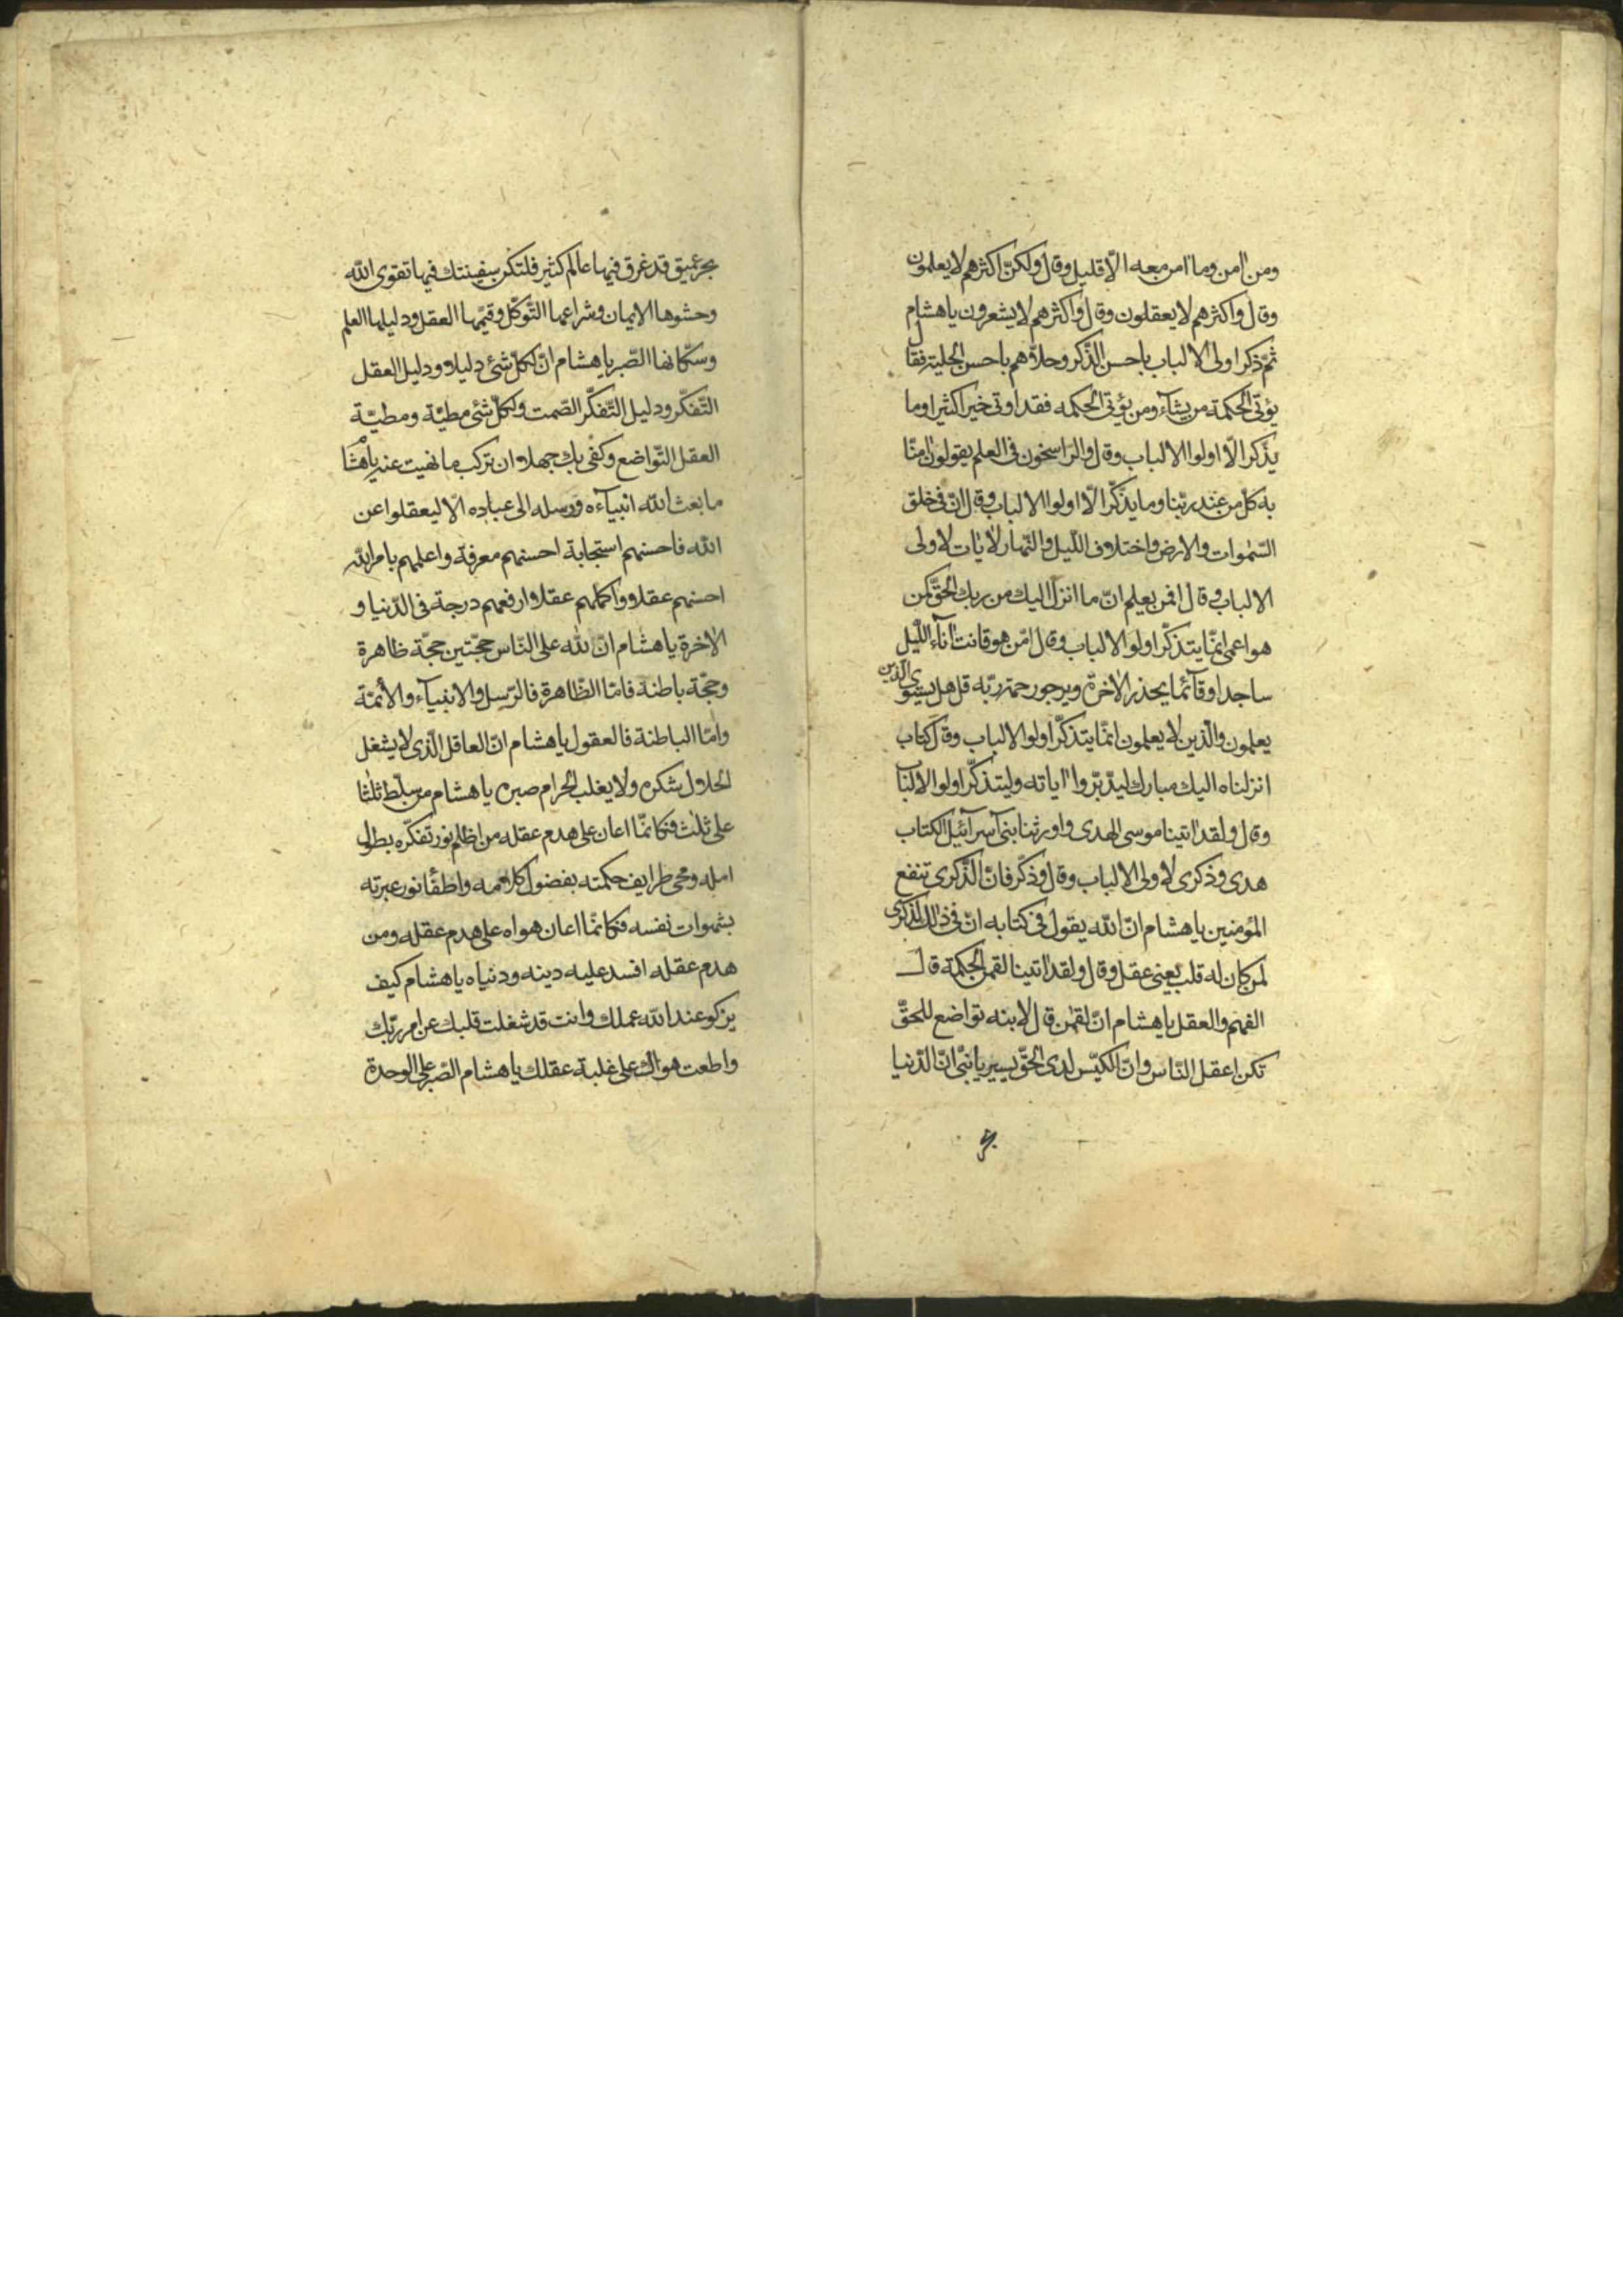 ومن اٰمن وما اٰمن معه الّا قليل وقال ولكنّ اكثرهم لا يعلمون
وقال واكثرهم لا يعقلون وقال واكثرهم لا يشعرون يا هشام
ثمّ ذكر اولى الالباب باحسن الذّكر وحلاّهم باحسن الحلية فقال
يؤتى الحكمة من يشآء ومن يؤتى الحكمه فقد اوتى خيرا كثيرا وما
يذّكر الّا اولوا الالباب وقال والراسخون فى العلم يقولون اٰمنّا
به كل من عند ربّنا وما يذّكّر الّا اولوا الالباب وقال انّ فى خلق
السّمٰوات والارض واختلاف اللّيل والنّهار لاٰيات لاولى
الالباب وقال افمن يعلم انّ ما انزل اليك من ربك الحقّ كمن
هو اعمى انمّا يتذكّر اولو الالباب وقال امّن هو قانت اٰنآء اللّيل
ساجدا وقآئما يحذر الاخرة ويرجو رحمة ربّه قل هل يستوى الّذين
يعلمون والّذين لا يعلمون انمّا يتذكّر اولو الالباب وقال كتاب
انزلناه اليك مبارك ليدّبّروا اٰياته وليتذكّر اولو الالباب
وقال ولقد اٰتينا موسى الهدى واورثنا بنى اسرآئيل الكتاب
هدى وذكرى لاولى الالباب وقال وذكّر فانّ الذّكرى تنفع
المؤمنين يا هشام انّ الله يقول فى كتابه انّ فى ذٰلك لذكرى
لمن كان له قلب يعنى عقل وقال ولقد اٰتينا لقمٰن الحكمة قال
الفهم والعقل يا هشام انّ لقمٰن قال لابنه تواضع للحقّ
تكن اعقل النّاس وانّ الكيّس لدى الحقّ يسير يا بنىّ انّ الدّنيا
بحر عميق قد غرق فيها عالم كثير فلتكن سفينتك فيها تقوى الله
وحشوها الايمان وشراعها التّوكّل وقيّمها العقل ودليلها العلم
وسكّانها الصّبر يا هشام انّ لكلّ شئ دليلا ودليل العقل
التّفكّر ودليل التّفكّر الصّمت ولكلّ شئ مطيّة ومطيّة
العقل التّواضع وكفى بك جهلا ان تركب ما نهيت عنه يا هشام
ما بعث الله انبيآءه ورسله الى عباده الّا ليعقلوا عن
الله فاحسنهم استجابة احسنهم معرفة واعلمهم بامر الله
احسنهم عقلا واكملهم عقلا وارفعهم درجة فى الدّنيا و
الاٰخرة يا هشام انّ لله على النّاس حجّتين حجّة ظاهرة
وحجّة باطنة فامّا الظّاهرة فالرّسل والانبيآء والأئمّة
وامّا الباطنة فالعقول يا هشام انّ العاقل الّذى لا يشغل
الحلال شكره ولا يغلب الحرام صبره يا هشام من سلّط ثلثا
على ثلث فكانمّا اعان على هدم عقله من اظلم نور تفكّره بطول
امله ومحى طرايف حكمته بفضول كلامه واطفأ نور عبرته
بشهوات نفسه فكانمّا اعان هواه على هدم عقله ومن
هدم عقله افسد عليه دينه ودنياه يا هشام كيف
يزكو عند الله عملك وانت قد شغلت قلبك عن امر ربّك
واطعت هواك على غلبة عقلك يا هشام الصّبر على الوحدة